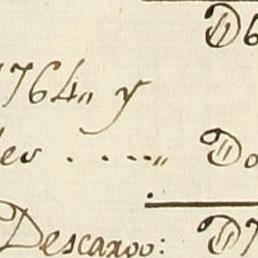 D6
1764„ y
les . . . . „ Do
Descargo: D7